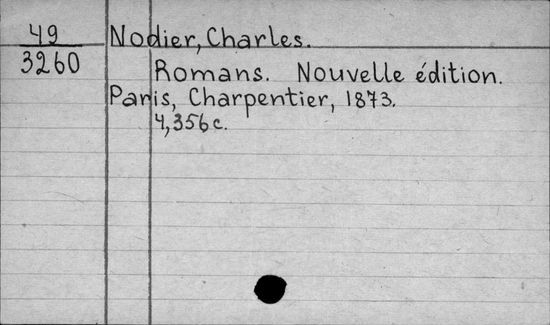 49
3260
Nodier, Charles.
Romans. Nouvelle édition.
Paris, Charpentier, 1873.
4,356 c.